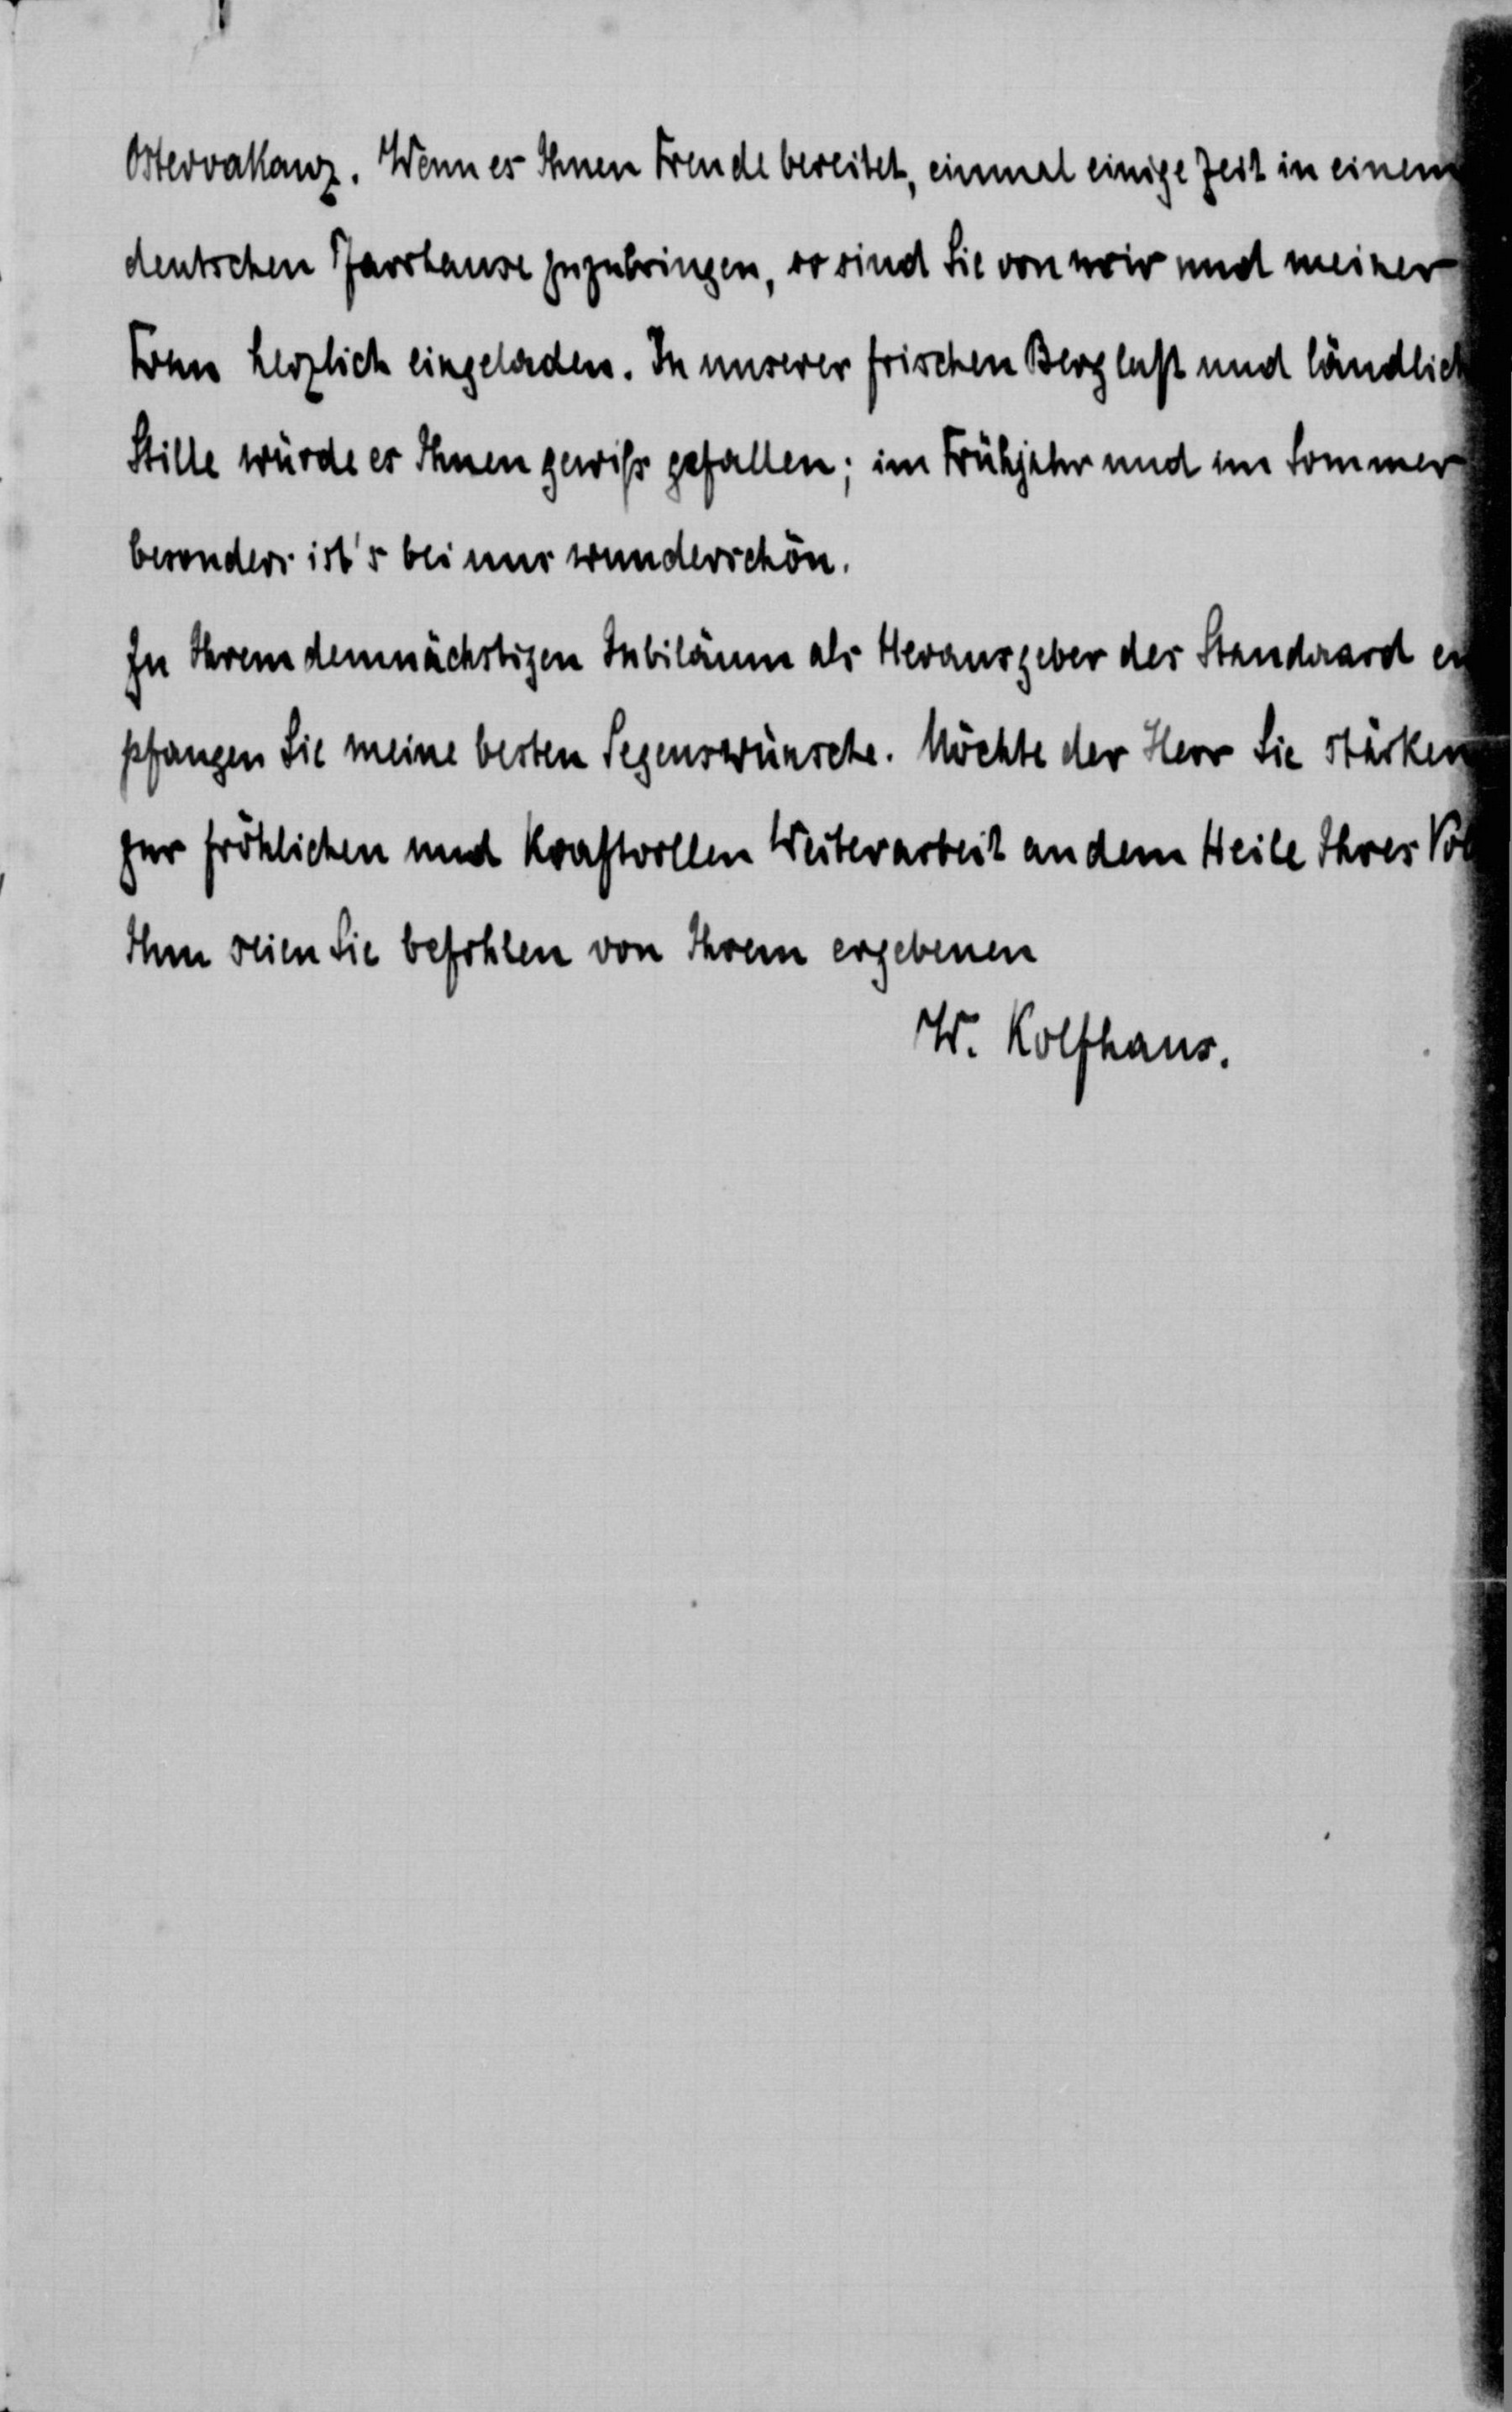 Ostervakanz. Wenn es Ihnen Freude bereitet, einmal einige Zeit in einem
deutschen Pfarrhause zuzubringen, so sind Sie von mir und meiner
Frau herzlich eingeladen. In unserer frischen Bergluft und ländlich
Stille würde es Ihnen gewiß gefallen; im Frühjahr und im Sommer
besonders ist's bei uns wunderschön.
Zu Ihrem demnächstigen Jubiläum als Herausgeber des Standaard em
pfangen Sie meine besten Segenswünsche. Möchte der Herr Sie stärken
zur fröhlichen und kraftvollen Weiterarbeit an dem Heile Ihres Vol
Ihm seien Sie befohlen von Ihrem ergebenen
W. Kolfhaus.